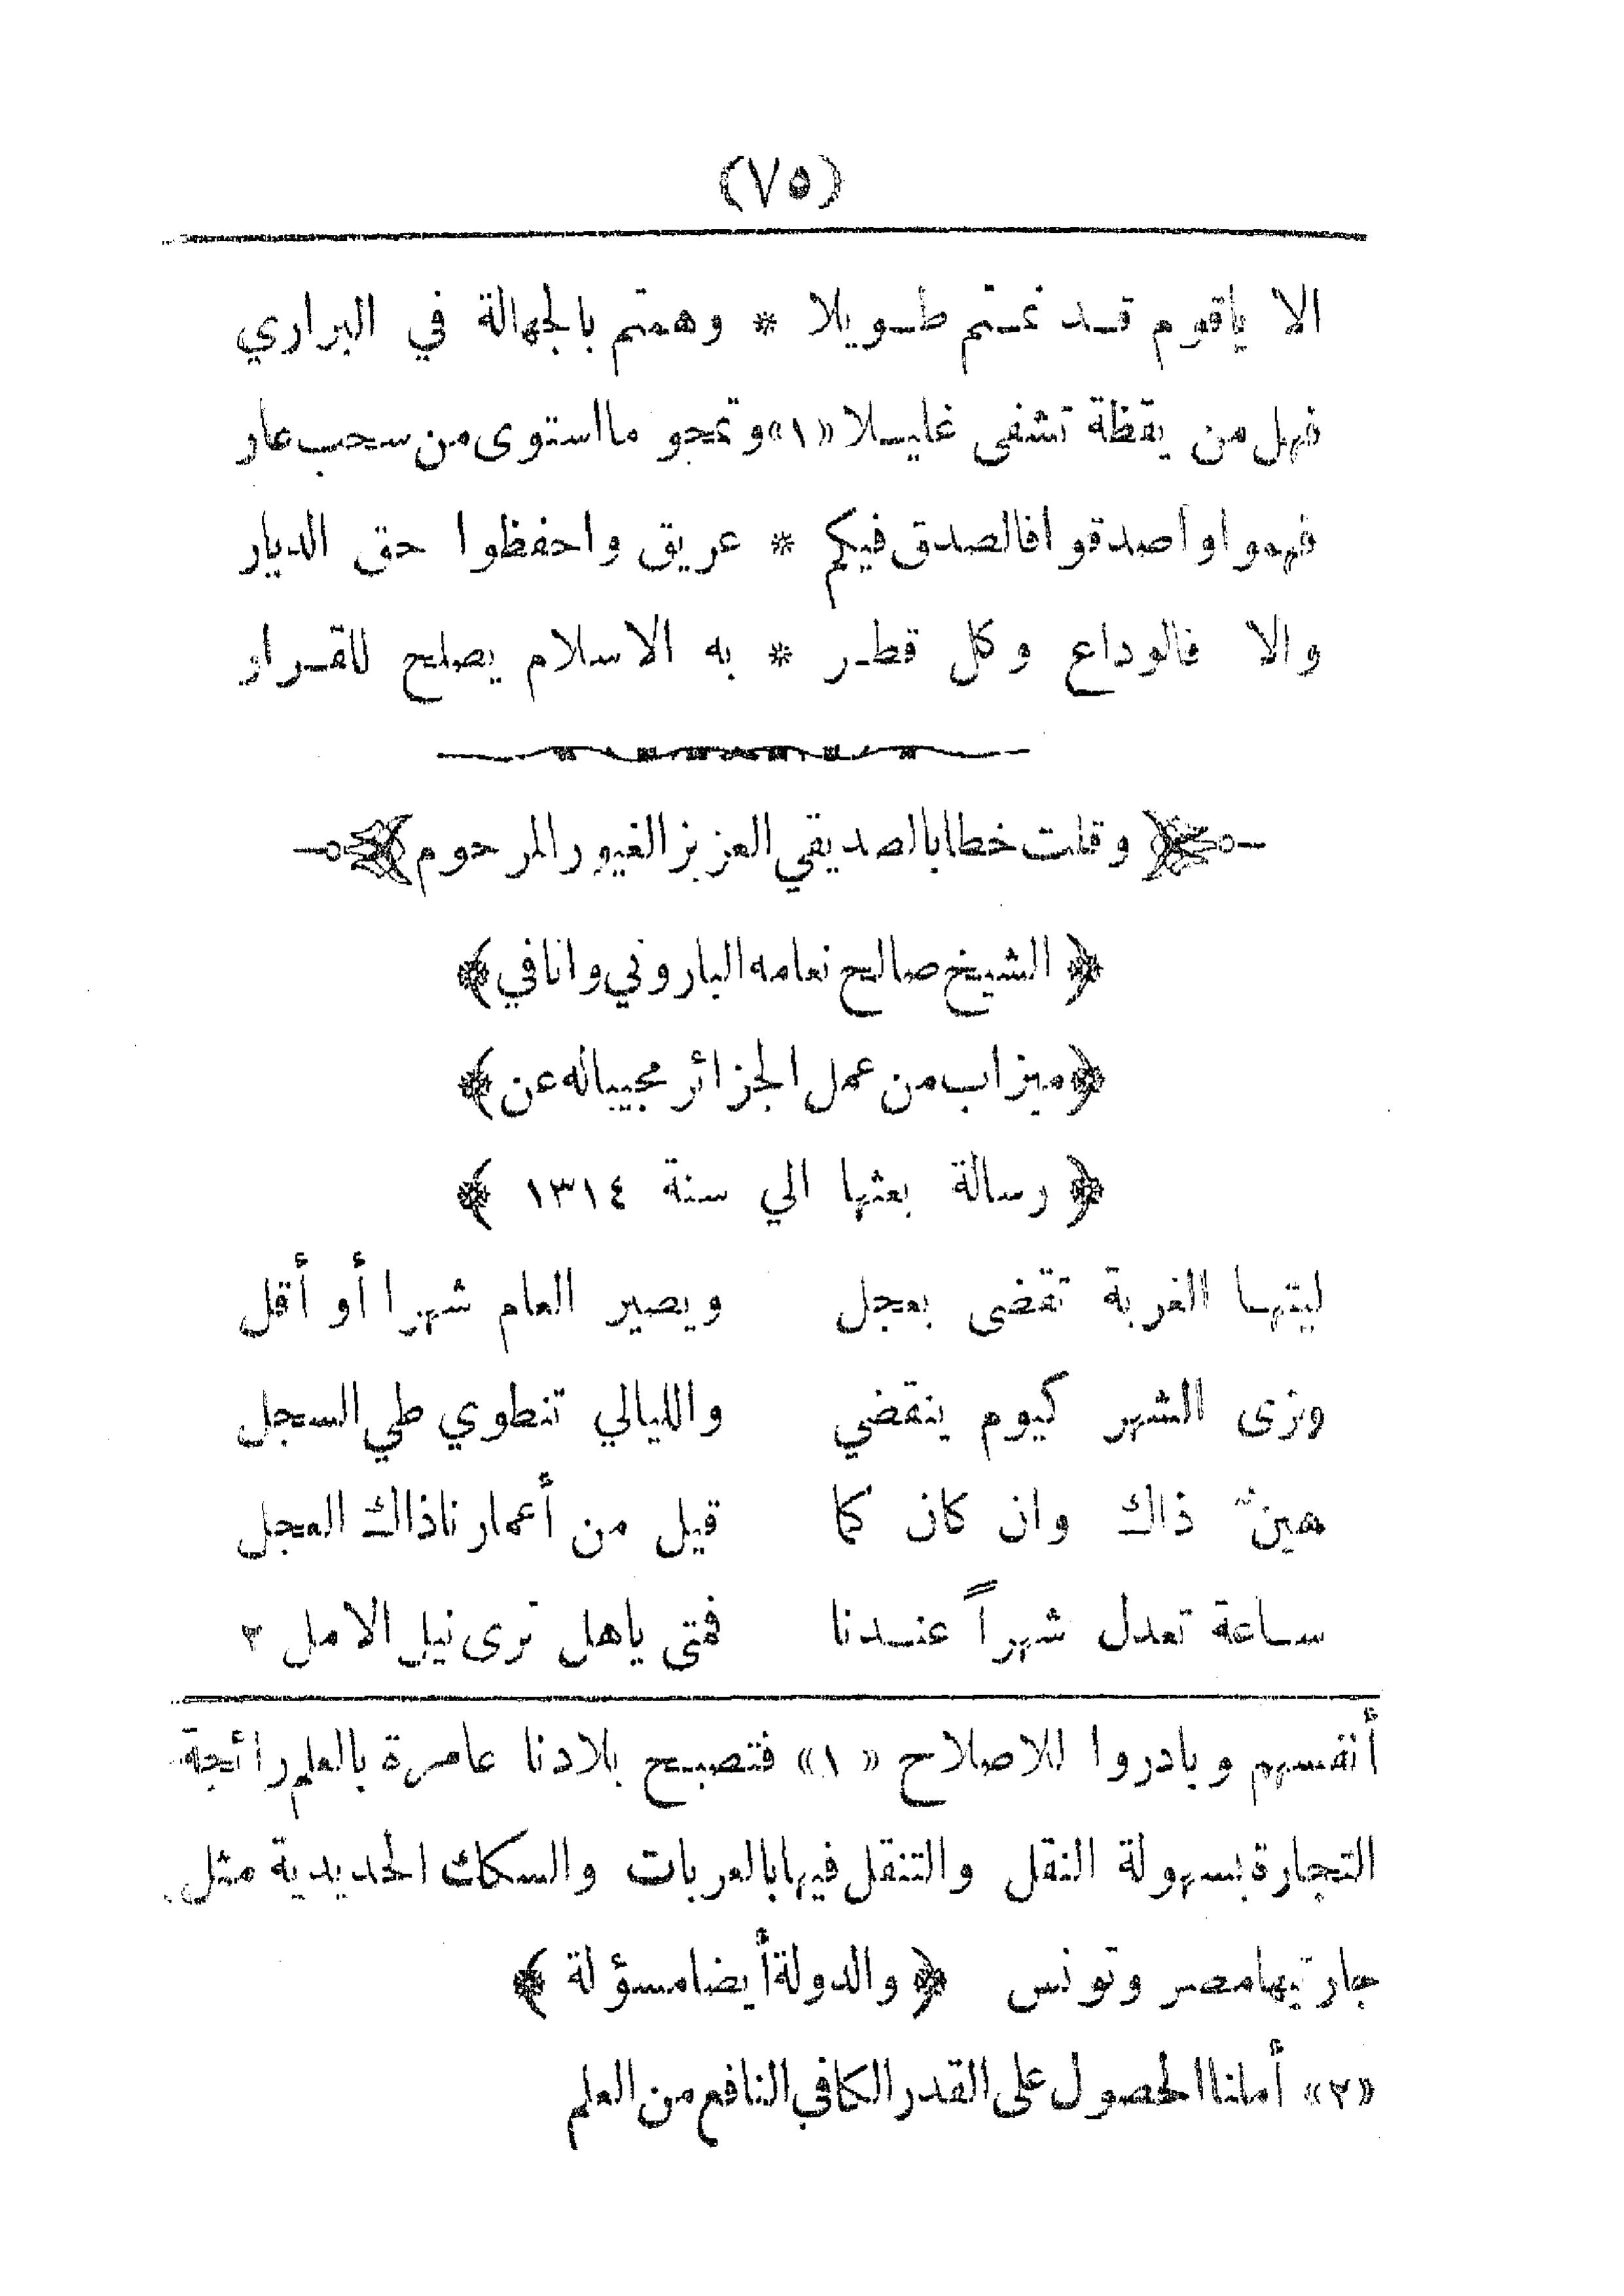 (٧٥)
الا ياقوم قد نمتم طويلا * وهمتم بالجهالة في البراري
فهل من يقظة تشفى غليلا «١» وتمحو ما استوى من سحب عار
فهموا واصدقوا فالصدق فيكم * عريق واحفظوا حق الديار
والا فالوداع وكل قطر * به الاسلام يصلح للقرار
وقلت خطابا لصديقي العزيز الغيور المرحوم
﴿ الشيخ صالح نعامه الباروني وانا في ﴾
﴿ ميزاب من عمل الجزائر مجيبا له عن ﴾
﴿ رسالة بعثها الي سنة ١٣١٤ ﴾
ليتها الغربة تقضى بعجل ويصير العام شهرا أو أقل
ونرى الشهر كيوم ينقضي والليالي تنطوي طي السجل
هين ذاك وان كان كما قيل من أعمارنا ذاك العجل
ساعة تعدل شهراً عندنا فمتى ياهل ترى نيل الامل ٢
أنفسهم وبادروا للاصلاح «١» فتصبح بلادنا عامرة بالعلم رائجة
التجارة بسهولة النقل والتنقل فيها بالعربات والسكك الحديدية مثل
جارتيها مصر وتونس ﴿ والدولة أيضا مسؤلة ﴾
«٢» أملنا الحصول على القدر الكافي النافع من العلم